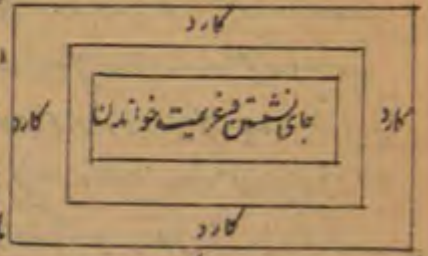 کارد
کارد
جای نشستن و عزیمت خواندن
کارد
کارد